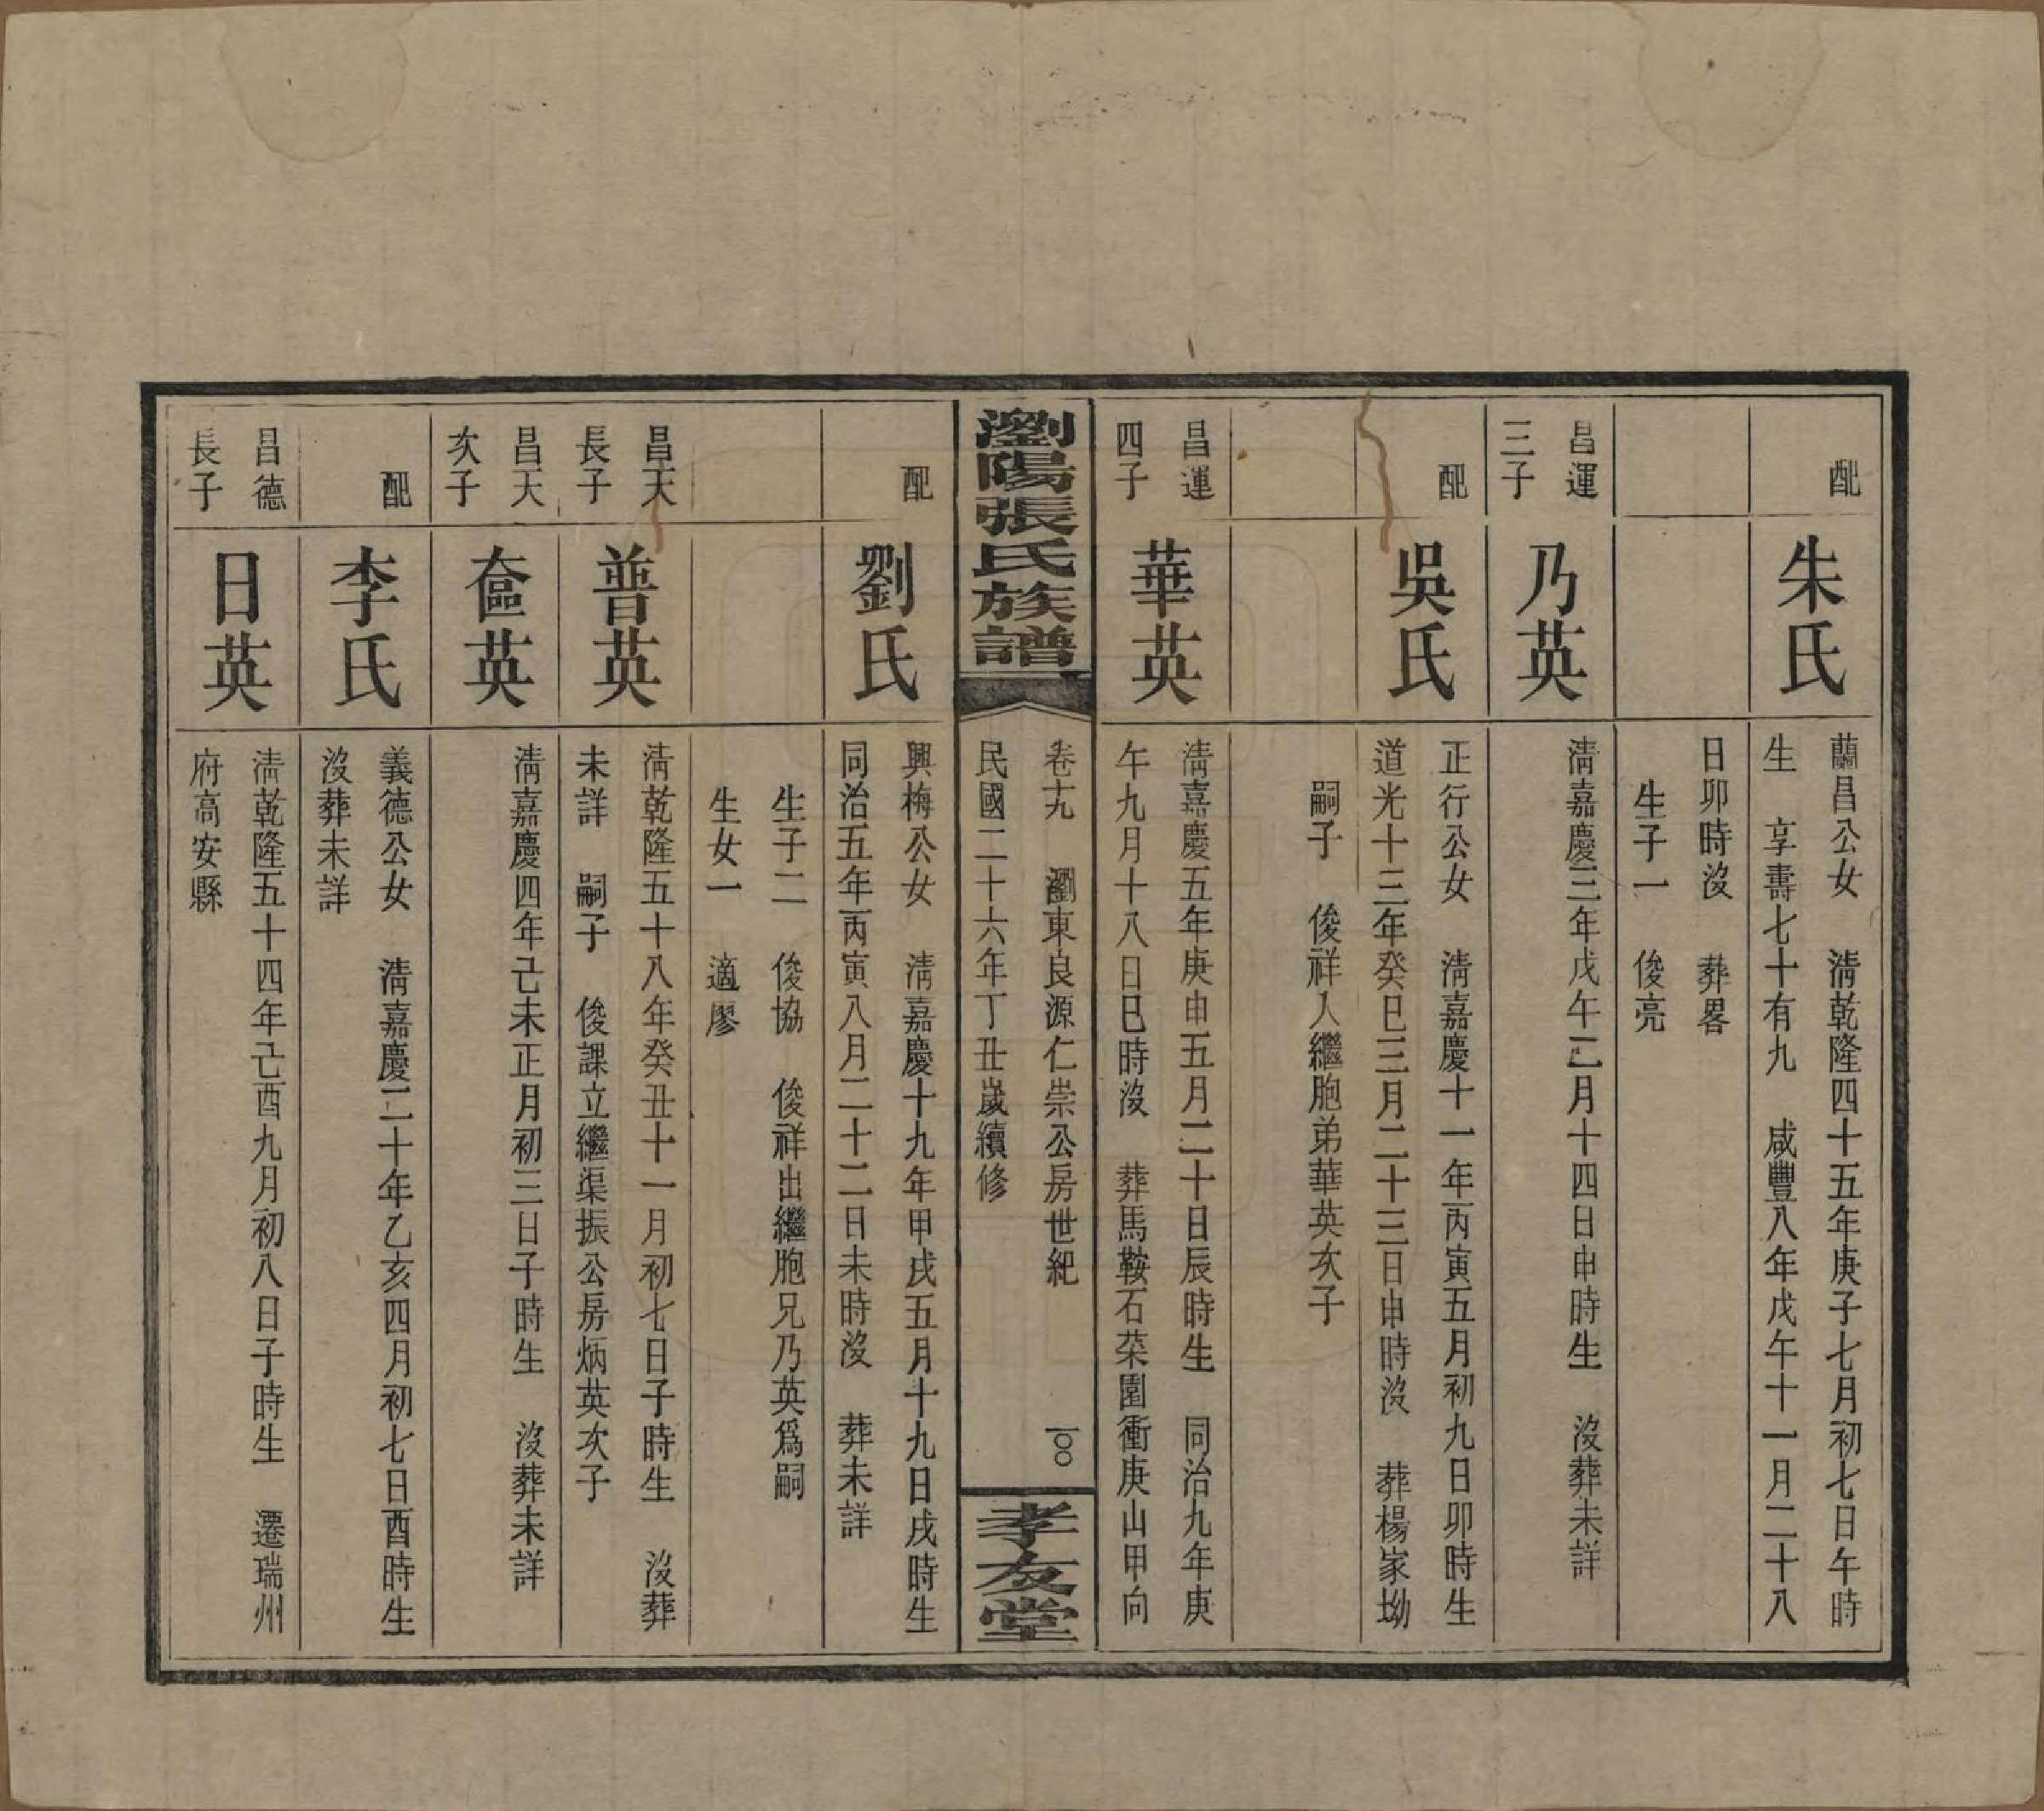 配
朱氏
蘭昌公女　淸乾隆四十五年庚子七月初七日午時
生　享壽七十有九　咸豐八年戊午十一月二十八
日卯時沒　葬畧
生子一　俊亮
昌運
三子
乃英
淸嘉慶三年戊午二月十四日申時生　沒葬未詳
配
吳氏
正行公女　淸嘉慶十一年丙寅五月初九日卯時生
道光十三年癸巳三月二十三日申時沒　葬楊家坳
嗣子　俊祥入繼胞弟華英次子
昌運
四子
華英
淸嘉慶五年庚申五月二十日辰時生　同治九年庚
午九月十八日巳時沒　葬馬鞍石菜園衝庚山甲向
瀏陽張氏族譜
卷十九　瀏東良源仁崇公房世紀　一〇〇
民國二十六年丁丑歲續修
孝友堂
配
劉氏
興梅公女　淸嘉慶十九年甲戌五月十九日戌時生
同治五年丙寅八月二十二日未時沒　葬未詳
生子二　俊協　俊祥出繼胞兄乃英爲嗣
生女一　適廖
昌天
長子
普英
淸乾隆五十八年癸丑十一月初七日子時生　沒葬
未詳　嗣子　俊課立繼渠振公房炳英次子
昌天
次子
奩英
淸嘉慶四年己未正月初三日子時生　沒葬未詳
配
李氏
義德公女　淸嘉慶二十年乙亥四月初七日酉時生
沒葬未詳
昌德
長子
日英
淸乾隆五十四年己酉九月初八日子時生　遷瑞州
府高安縣